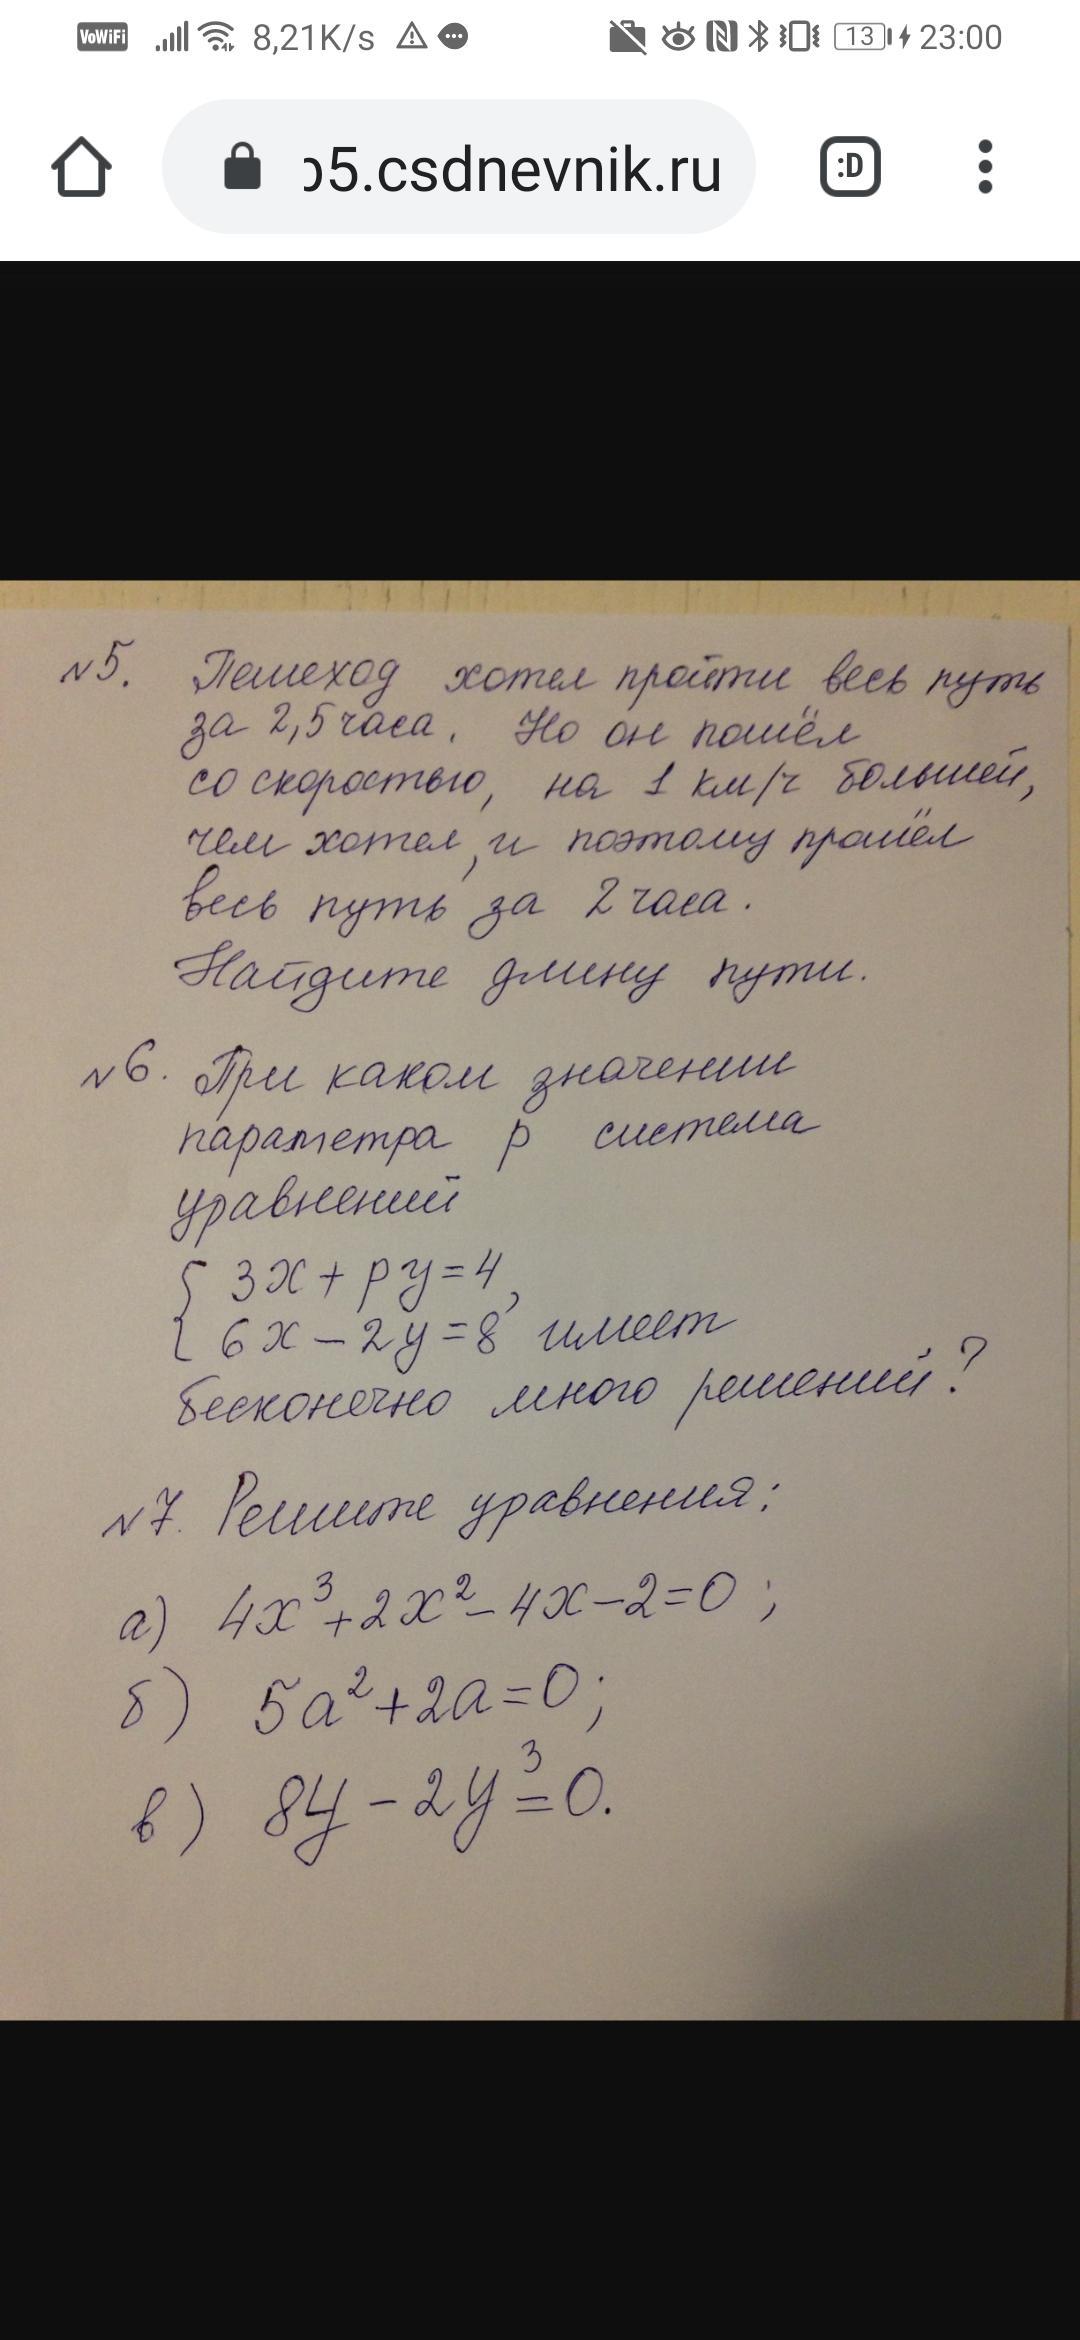 VoWiFi 8,21K/s 13 23:00
5.csdnevnik.ru :D
№5. Пешеход хотел пройти весь путь
за 2,5 часа. Но он пошёл
со скоростью, на 1 км/ч большей,
чем хотел, и поэтому прошёл
весь путь за 2 часа.
Найдите длину пути.
№6. При каком значении
параметра p система
уравнений
{ 3x + py = 4,
6x - 2y = 8 имеет
бесконечно много решений?
№7. Решите уравнения:
а) 4x³ + 2x² - 4x - 2 = 0;
б) 5a² + 2a = 0;
в) 8y - 2y³ = 0.